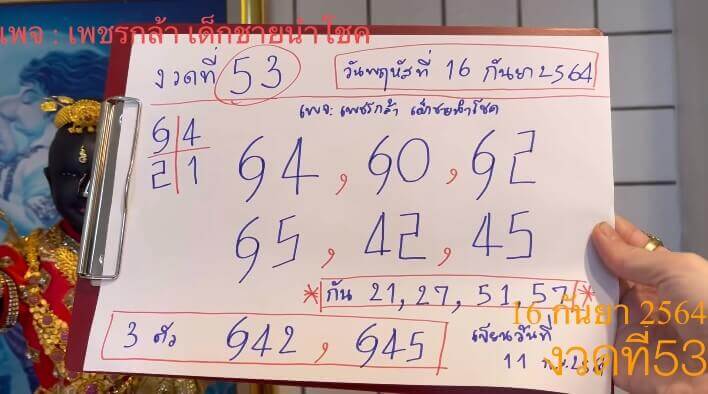 เพจ : เพชรกล้า เด็กชายนำโชค
งวดที่ 53
วันพฤหัสที่ 16 กันยา 2564
เพจ: เพชรกล้า เด็กชายนำโชค
6 4
2 1
64 , 60 , 62
65 , 42 , 45
* กัน 21, 27, 51, 57 *
3 ตัว 642 , 645
เขียนวันที่
11
16 กันยา 2564
งวดที่53